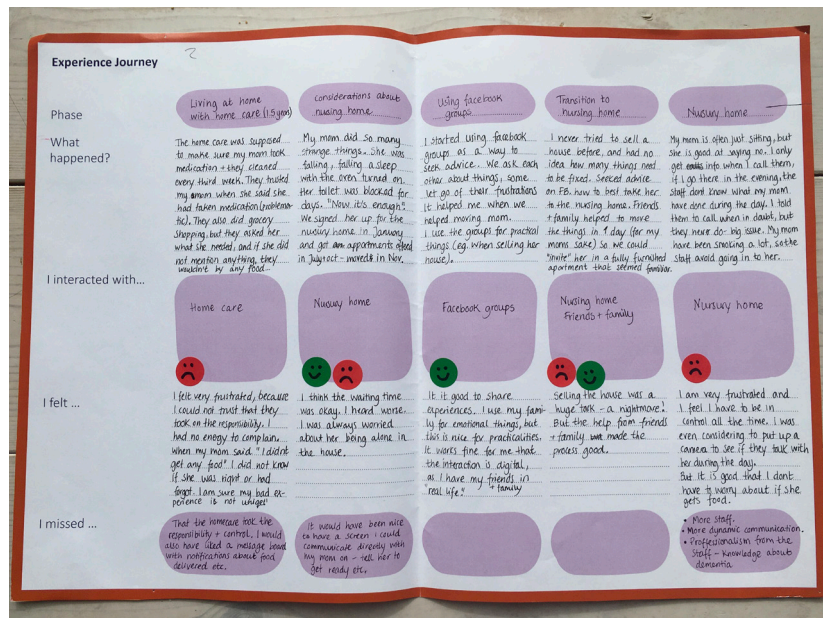 2
Experience Journey
Phase
Living at home
with home care (1.5 years)
Considerations about
nusing home
Using facebook
groups
Transition to
nursing home
Nusury home
What
happened?
The home care was supposed
to make sure my mom took
medication + they cleaned
every third week. They trusted
my mom when she said she
had taken medication (problema-
tic). They also did grocery
shopping, but they asked her
what she needed, and if she did
not mention anything, they
wouldn't by any food
My mom did so many
strange things. She was
falling, falling a sleep
with the oven turned on
Her toilet was blocked for
days. "Now it's enough".
We signed her up for the
nusury home in January
and got appartments offered
in July + oct - moved in Nov.
I started using facebook
groups as a way to
seek advice. We ask each
other about things, some
let go of their frustrations
It helped me when we
helped moving mom.
I use the groups for practical
things (eg. when selling her
house).
I never tried to sell a
house before, and had no
idea how many things need
to be fixed. Seeked advice
on FB. how to best take her
to the nursing home. Friends
+ family helped to move
the things in 1 day (for my
moms sake) so we could
"invite" her in a fully furnished
apartment that seemed familiar.
My mom is often just sitting, but
she is good at saying no. I only
get info when I call them,
if I go there in the evening, the
staff dont know what my mom
have done during the day. I told
them to call when in doubt, but
they never do - big issue. My mom
have been smoking a lot, so the
staff avoid going in to her.
I interacted with...
Home care
Nusury home
Facebook groups
Nursing home
Friends + family
Nursury home
I felt ...
I felt very frustrated, because
I could not trust that they
took on the responsibility. I
had no energy to complain.
When my mom said "I didnt
get any food" I did not know
if she was right or had
forgot. I am sure my bad ex-
perience is not unique!
I think the waiting time
was okay. I heard worse.
I was always worried
about her being alone in
the house.
It it good to share
experiences. I use my fami-
ly for emotional things, but
this is nice for practicalities.
It works fine for me that
the interaction is digital,
as I have my friends in
"real life". + family
Selling the house was a
huge task - a nightmare!
But the help from friends
+ family made the
process good.
I am very frustrated and
I feel I have to be in
control all the time. I was
even considering to put up a
camera to see if they talk with
her during the day.
But it is good that I dont
have to worry about if she
gets food.
I missed ...
That the homecare took the
responsibility + control. I would
also have liked a message board
with notifications about food
delivered etc.
It would have been nice
to have a screen I could
communicate directly with
my mom on - tell her to
get ready etc.
• More staff.
• More dynamic communication.
• Proffessionalism from the
staff - knowledge about
dementia